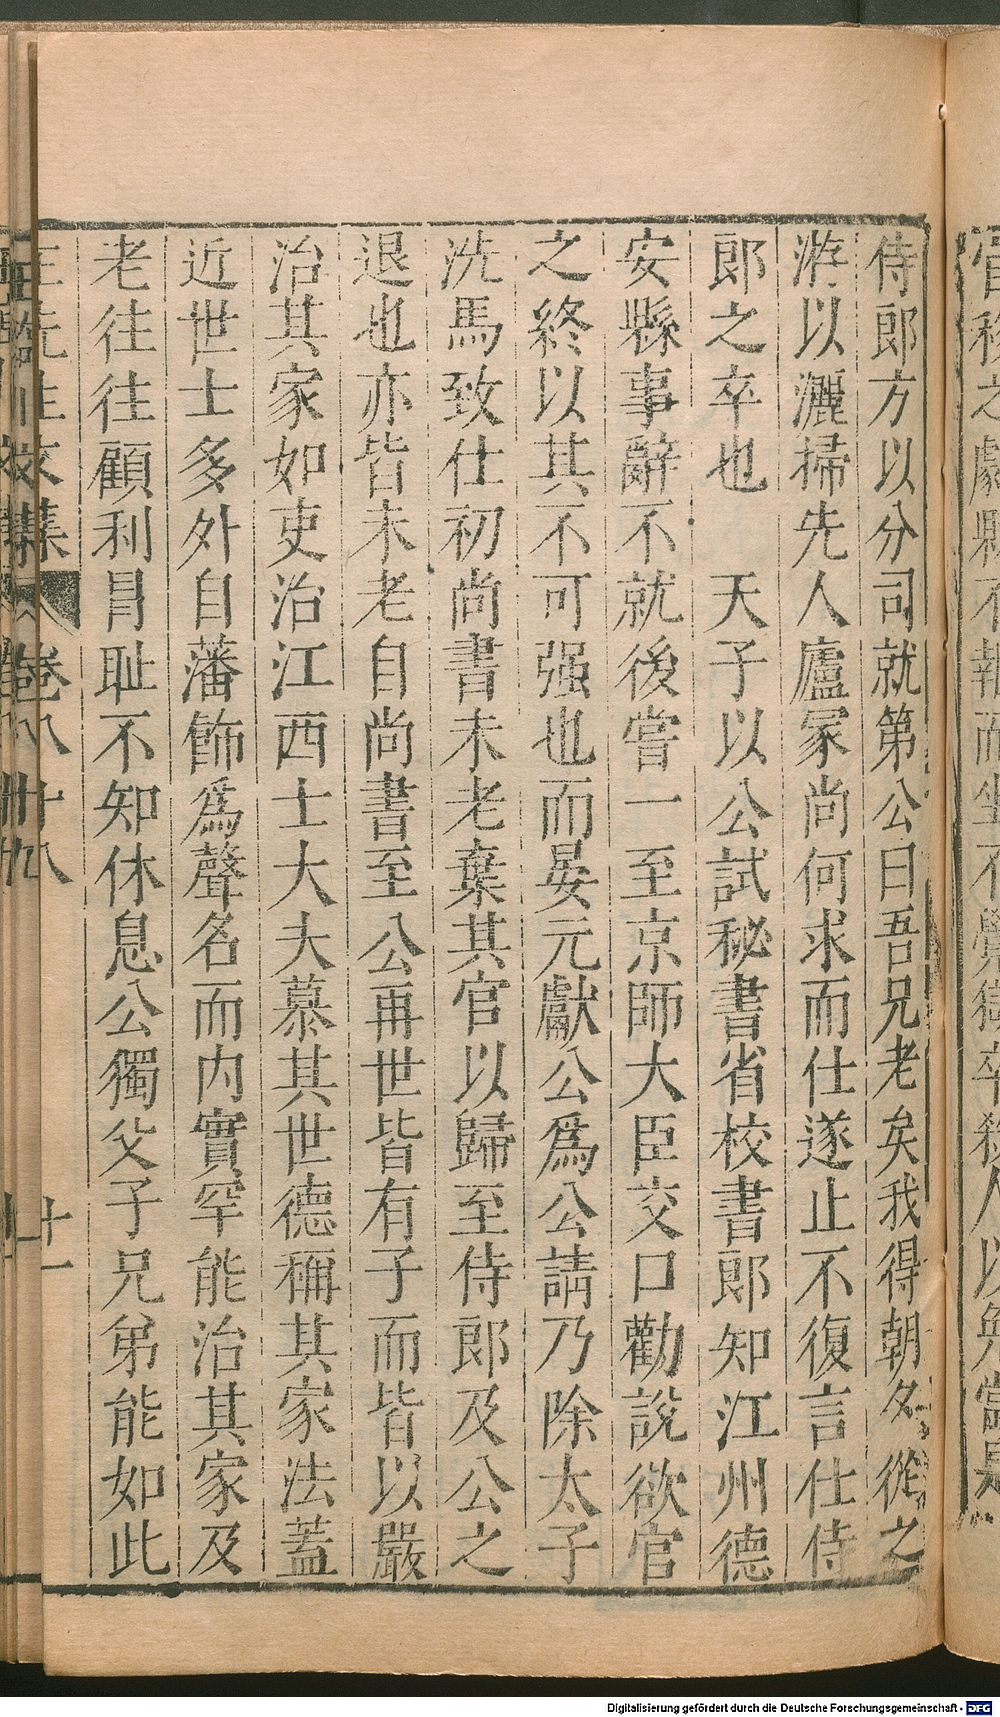 侍郎方以分司就第公曰吾兄老矣我得朝夕從之
游以灑掃先人廬冢尚何求而仕遂止不復言仕侍
郎之卒也　天子以公試秘書省校書郎知江州德
安縣事辭不就後嘗一至京師大臣交口勸說欲官
之終以其不可强也而晏元獻公爲公請乃除太子
洗馬致仕初尚書未老棄其官以歸至侍郎及公之
退也亦皆未老自尚書至公再世皆有子而皆以嚴
治其家如吏治江西士大夫慕其世德稱其家法蓋
近世士多外自藩飾爲聲名而内實罕能治其家及
老往往顧利冒恥不知休息公獨父子兄弟能如此
Digitalisierung gefördert durch die Deutsche Forschungsgemeinschaft - DFG